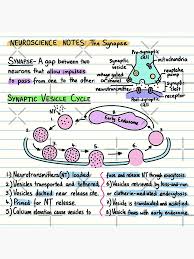 NEUROSCIENCE NOTES: The Synapse
SYNAPSE- A gap between two
neurons that allow impulses
to pass from one to the next
Pre-synaptic
cell
mitochondria
Synaptic
vesicle
voltage gated
channel
neurotransmitter
reuptake
pump
neurotransmitter
receptors
Post-synaptic
cell
SYNAPTIC VESICLE CYCLE
Early Endosome
1) Neurotransmitters (NT) loaded
2) Vesicles transported and tethered
3) Vesicles docked near release site
4) Primed for NT release
5) Calcium elevation cause vesicles to
fuse and release NT through exocytosis
6) Vesicles retrieved by kiss-and-run
or clathrin-mediated endocytosis
7) Vesicle is translocated and acidified
8) Vesicle fuses with early endosome